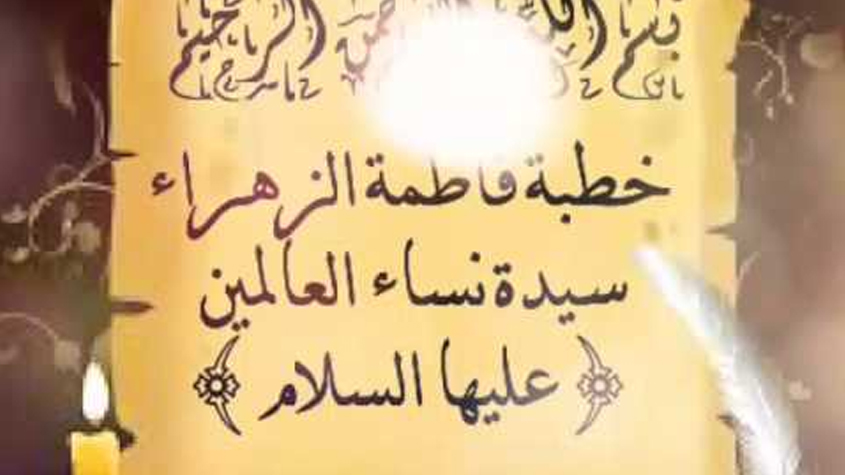 بسم الله الرحمن الرحيم
خطبة فاطمة الزهراء
سيدة نساء العالمين
﴿عليها السلام﴾